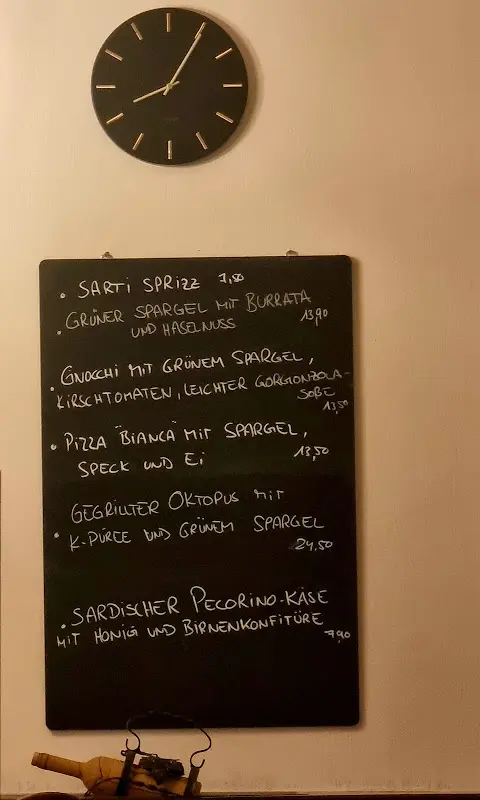 • SARTI SPRIZZ 7,50
• GRÜNER SPARGEL MIT BURRATA
UND HASELNUSS 13,90
• GNOCCHI MIT GRÜNEM SPARGEL,
KIRSCHTOMATEN, LEICHTER GORGONZOLA-
SOßE
13,50
• PIZZA "BIANCA" MIT SPARGEL,
SPECK UND Ei 13,50
GEGRILLTER OKTOPUS MIT
• K-PÜREE UND GRÜNEM SPARGEL
24,50
• SARDISCHER PECORINO-KÄSE
MIT HONIG UND BIRNENKONFITÜRE
7,90